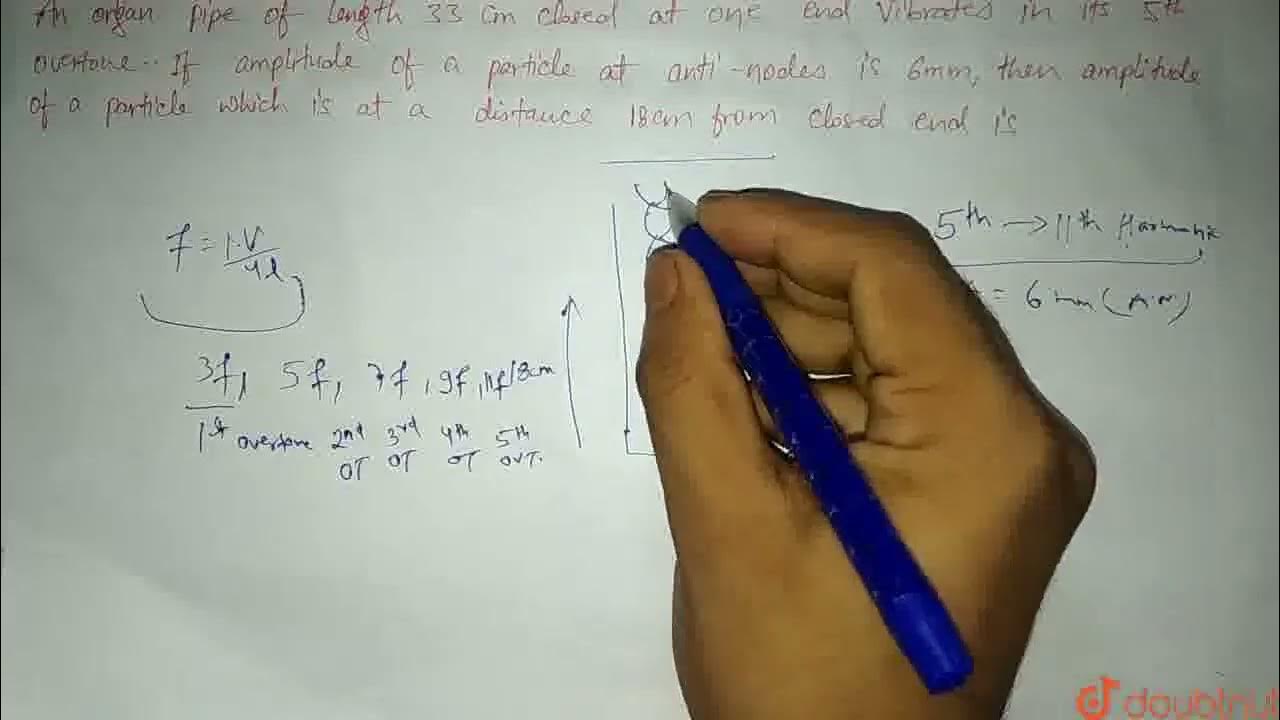 An organ pipe of length 33 cm closed at one end vibrates in its 5th
overtone.. If amplitude of a particle at anti-nodes is 6mm, then amplitude
of a particle which is at a distance 18cm from closed end is
5th → 11th Harmonic
f = 1.V/4l
= 6 mm (A.N)
3f, 5f, 7f, 9f, 11f 18cm
1st overtone 2nd OT 3rd OT 4th OT 5th OVT.
doubtnut